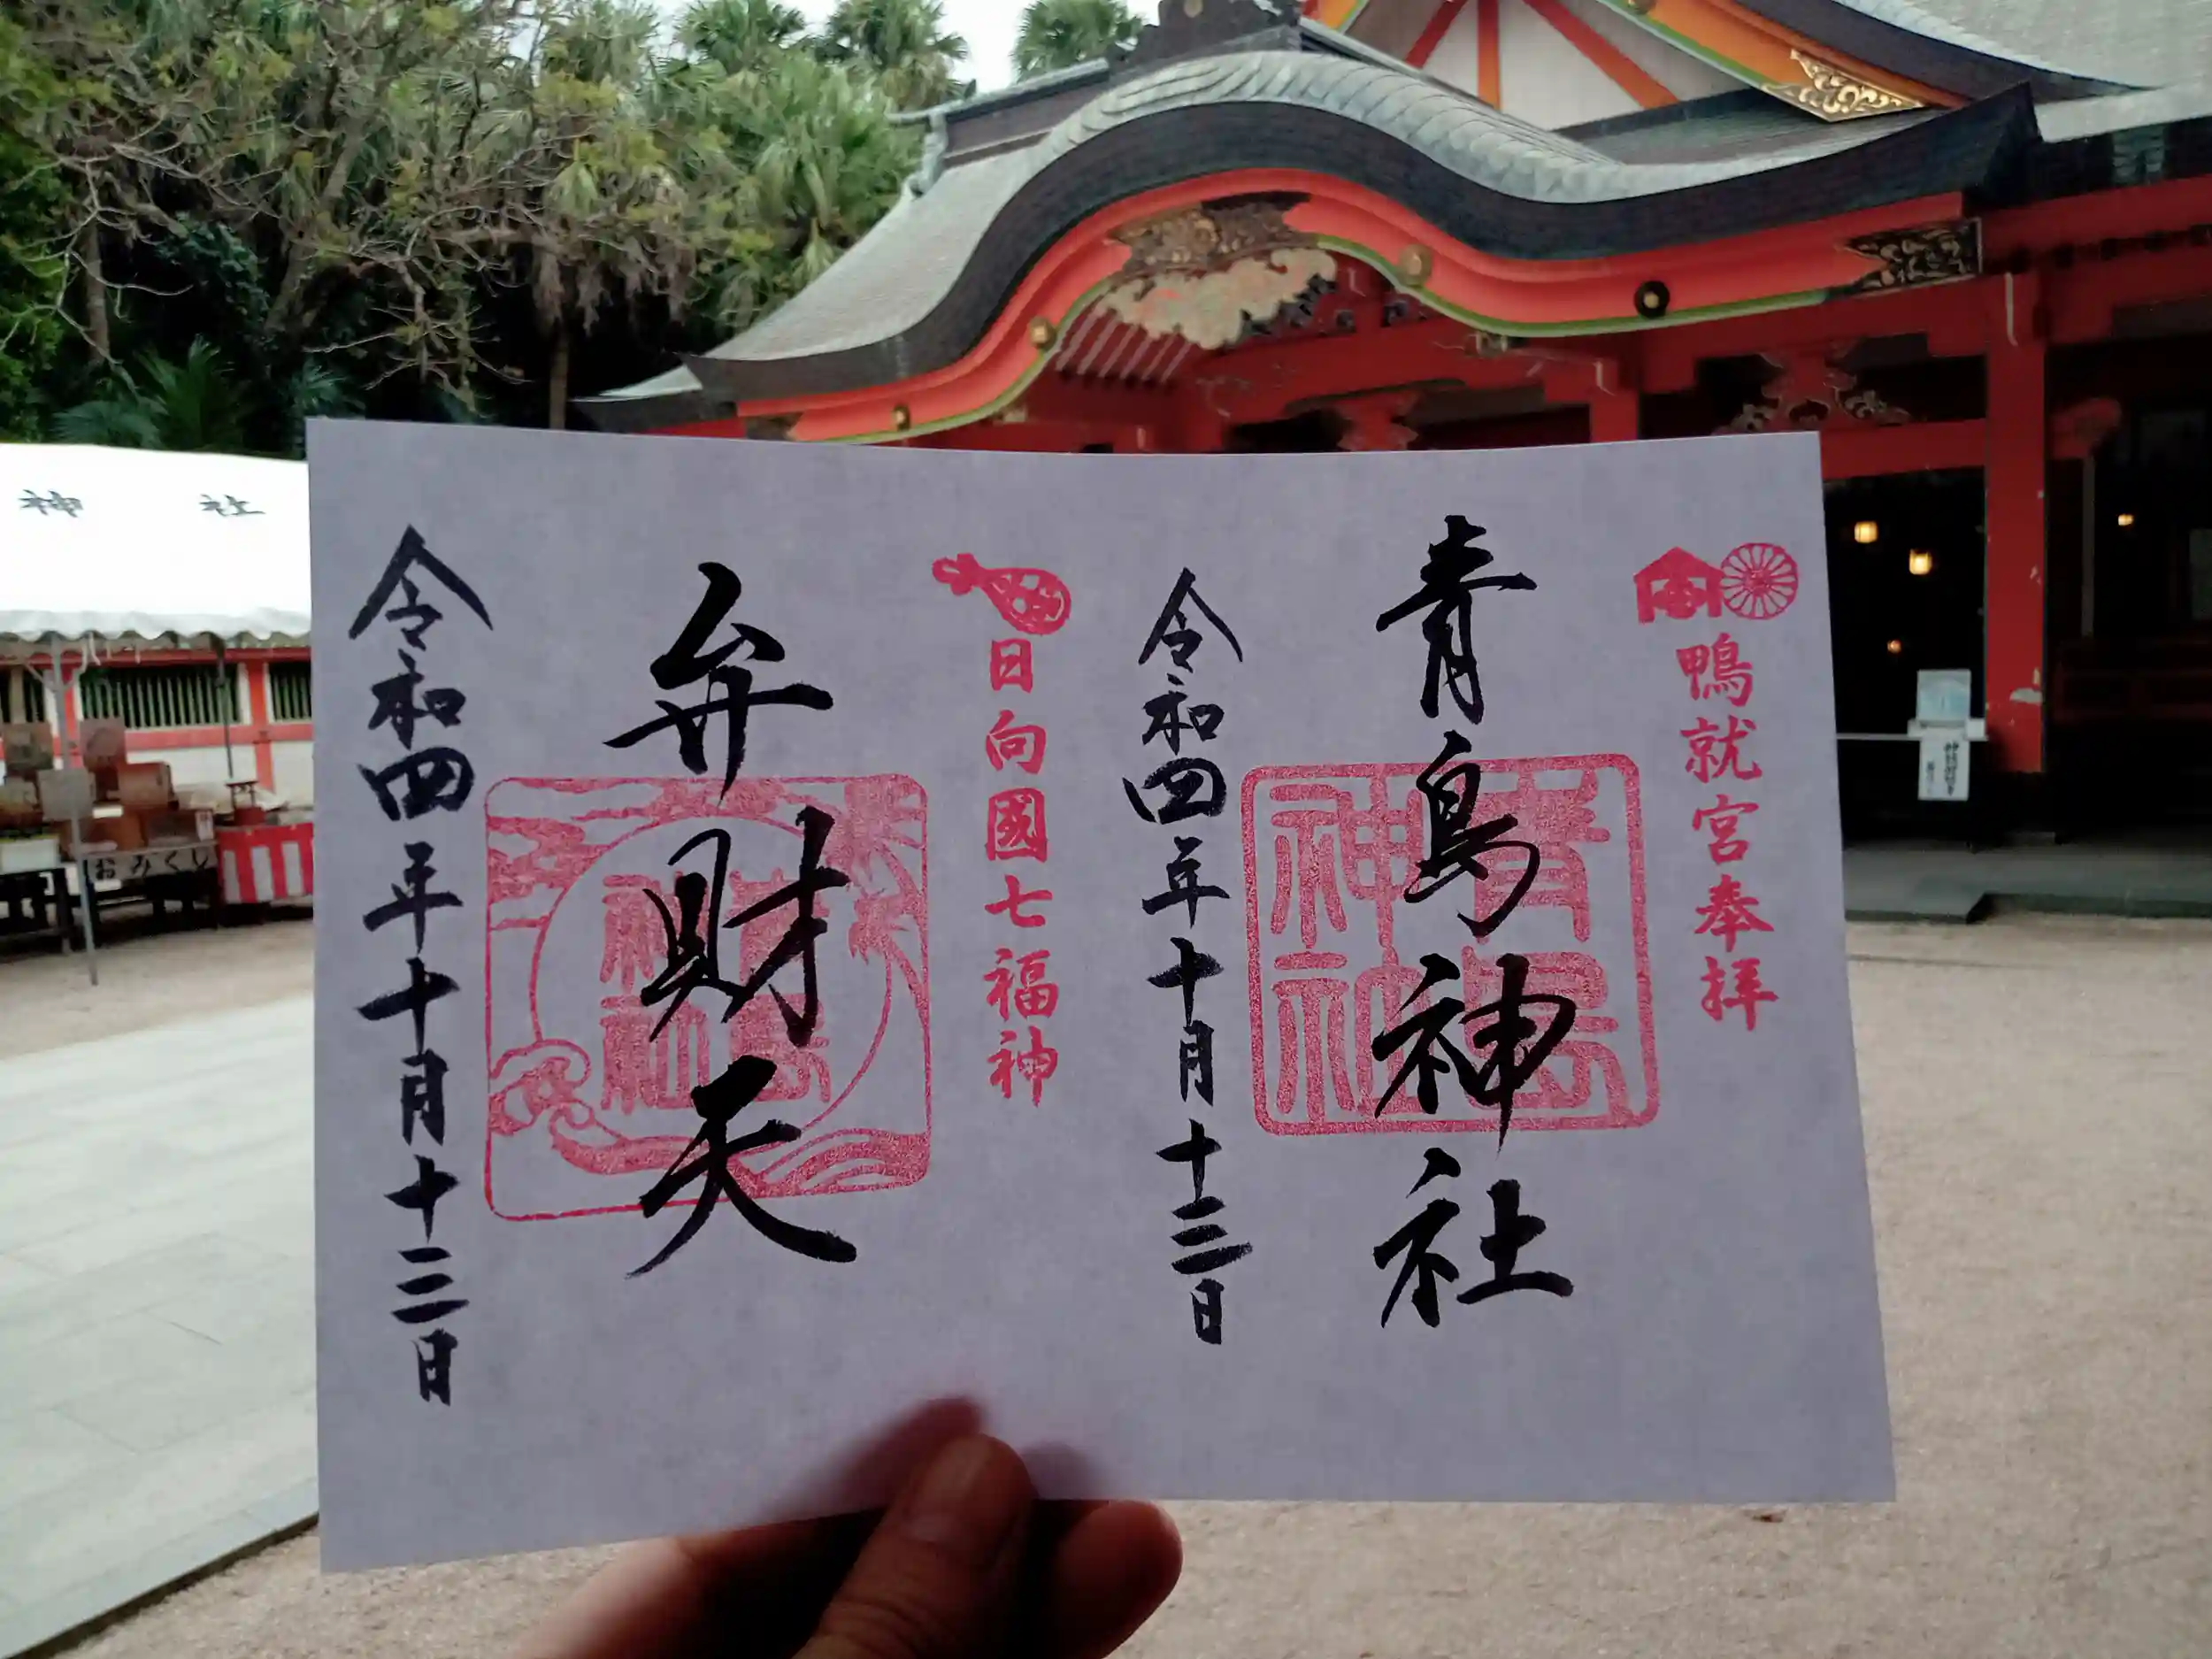 鴨就宮奉拝
青島神社
青島神社
令和四年十月十三日
日向國七福神
弁財天
青島神社
令和四年十月十三日
神社
おみくじ